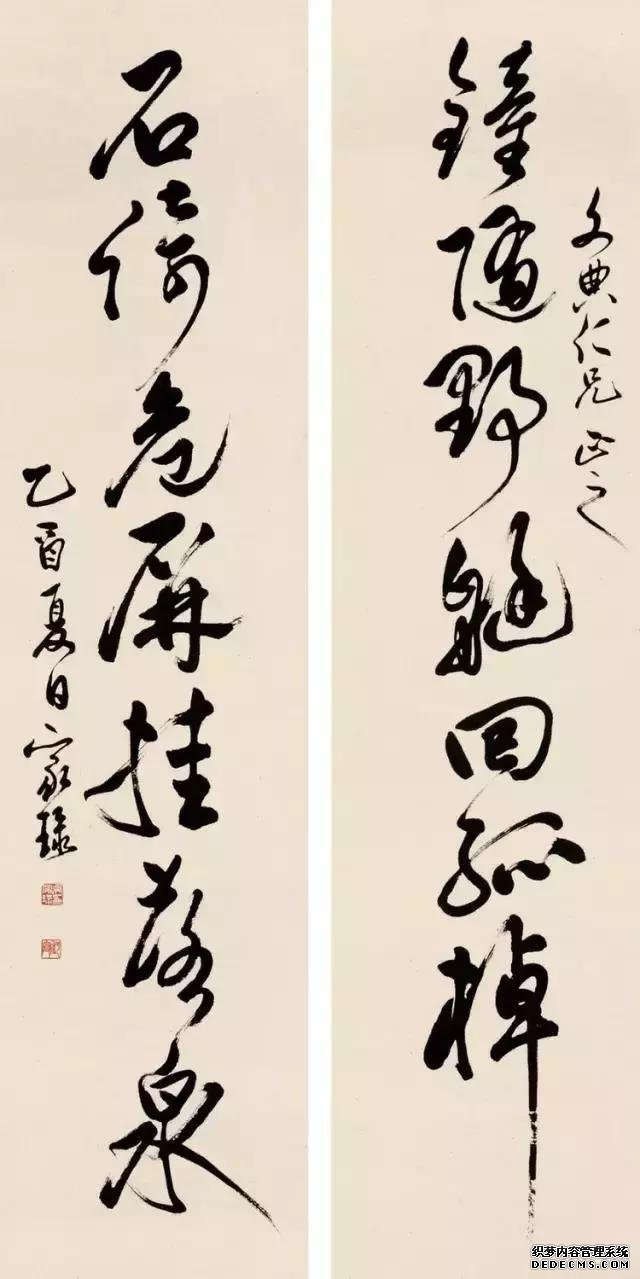 文典仁兄正之
鐘隨野艇回孤棹
石倚危屏挂落泉
乙酉夏日家琭
织梦内容管理系统
DEDECMS.COM